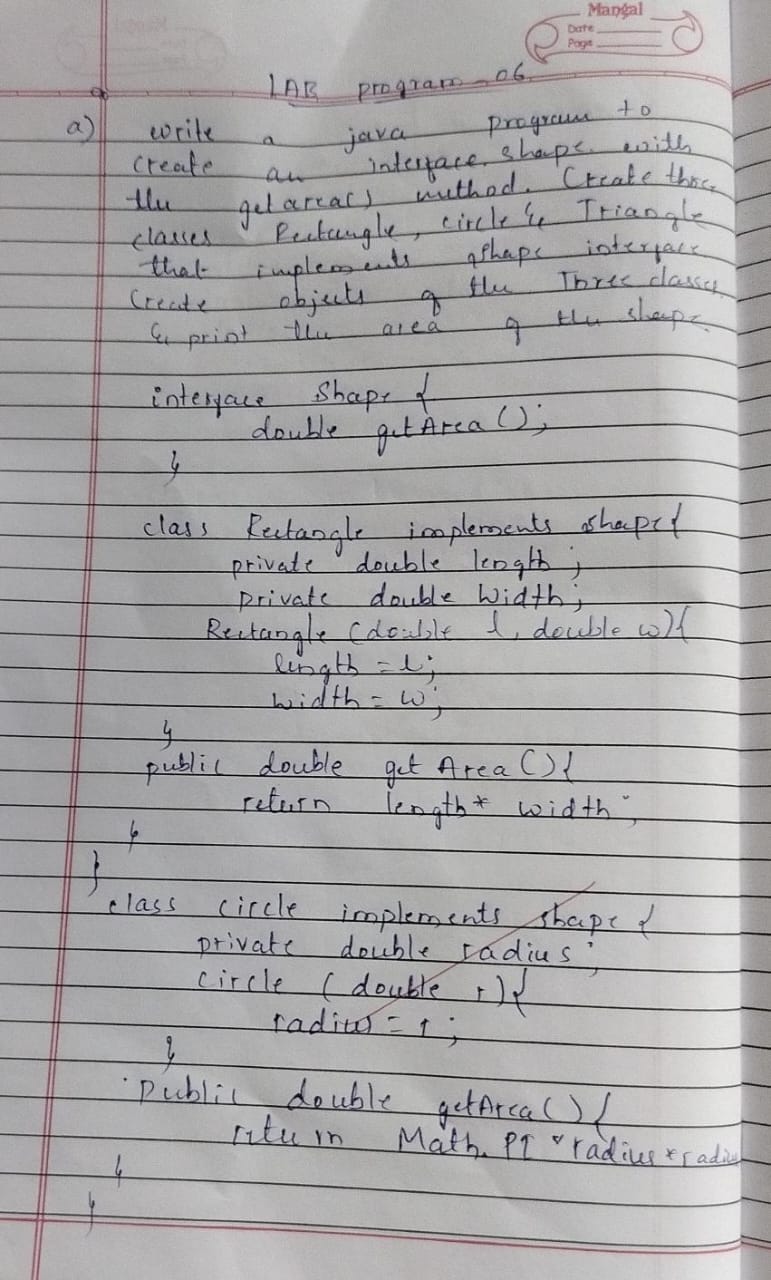 Mangal
Date
Page
LAB program - 06
a) write a java program to
create an interface shape with
the getarea() method. Create three
classes Rectangle, circle & Triangle
that implements shape interface
Create objects of the Three classes
& print the area of the shape.
interface Shape {
double getArea();
}
class Rectangle implements shape {
private double length;
private double width;
Rectangle (double l, double w) {
length = l;
width = w;
}
public double get Area () {
return length * width;
}
}
class circle implements shape {
private double radius;
circle (double r) {
radius = r;
}
public double getArea () {
return Math. PI * radius * radius
}
}